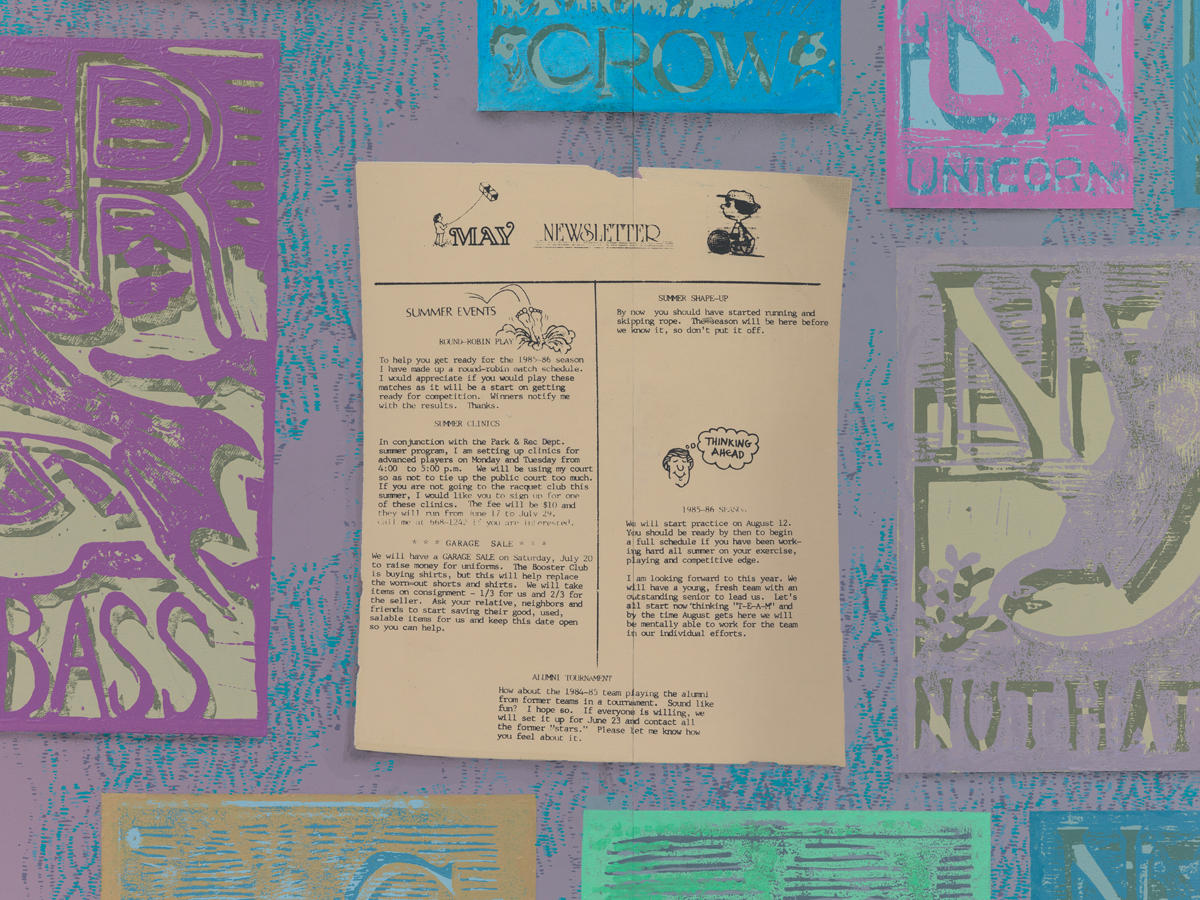 CROW
UNICORN
R
BASS
N
NUTHAT
MAY NEWSLETTER
SUMMER EVENTS
ROUND-ROBIN PLAY
To help you get ready for the 1985-86 season
I have made up a round-robin match schedule.
I would appreciate if you would play these
matches as it will be a start on getting
ready for competition. Winners notify me
with the results. Thanks.
SUMMER CLINICS
In conjunction with the Park & Rec Dept.
summer program, I am setting up clinics for
advanced players on Monday and Tuesday from
4:00 to 5:00 p.m. We will be using my court
so as not to tie up the public court too much.
If you are not going to the racquet club this
summer, I would like you to sign up for one
of these clinics. The fee will be $10 and
they will run from June 17 to July 29.
call me at 668-1242 if you are interested.
* * * GARAGE SALE * * *
We will have a GARAGE SALE on Saturday, July 20
to raise money for uniforms. The Booster Club
is buying shirts, but this will help replace
the worn-out shorts and shirts. We will take
items on consignment - 1/3 for us and 2/3 for
the seller. Ask your relative, neighbors and
friends to start saving their good, used,
salable items for us and keep this date open
so you can help.
SUMMER SHAPE-UP
By now you should have started running and
skipping rope. The season will be here before
we know it, so don't put it off.
THINKING
AHEAD
1985-86 SEASON
We will start practice on August 12.
You should be ready by then to begin
a full schedule if you have been work-
ing hard all summer on your exercise,
playing and competitive edge.
I am looking forward to this year. We
will have a young, fresh team with an
outstanding senior to lead us. Let's
all start now thinking "T-E-A-M" and
by the time August gets here we will
be mentally able to work for the team
in our individual efforts.
ALUMNI TOURNAMENT
How about the 1984-85 team playing the alumni
from former teams in a tournament. Sound like
fun? I hope so. If everyone is willing, we
will set it up for June 23 and contact all
the former "stars." Please let me know how
you feel about it.